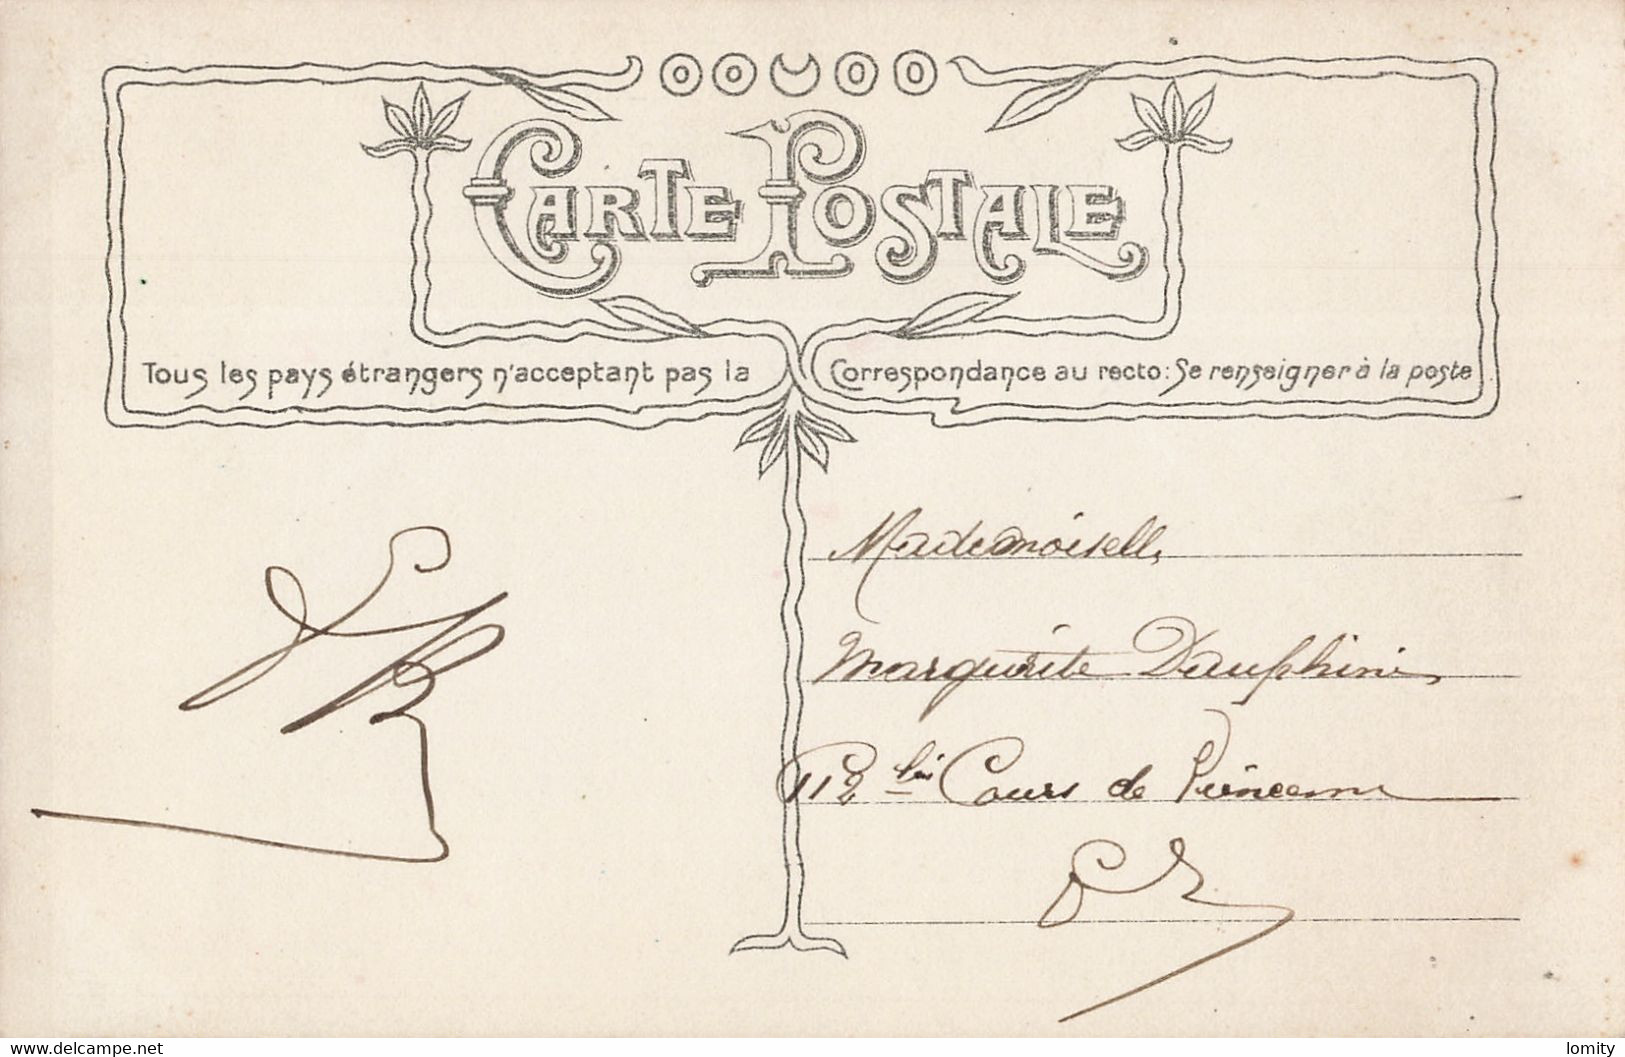 CARTE POSTALE
Tous les pays étrangers n'acceptant pas la Correspondance au recto: Se renseigner à la poste
Mademoiselle
Marguerite Dauphin
112 bis Cours de Vincennes
www.delcampe.net
lomity